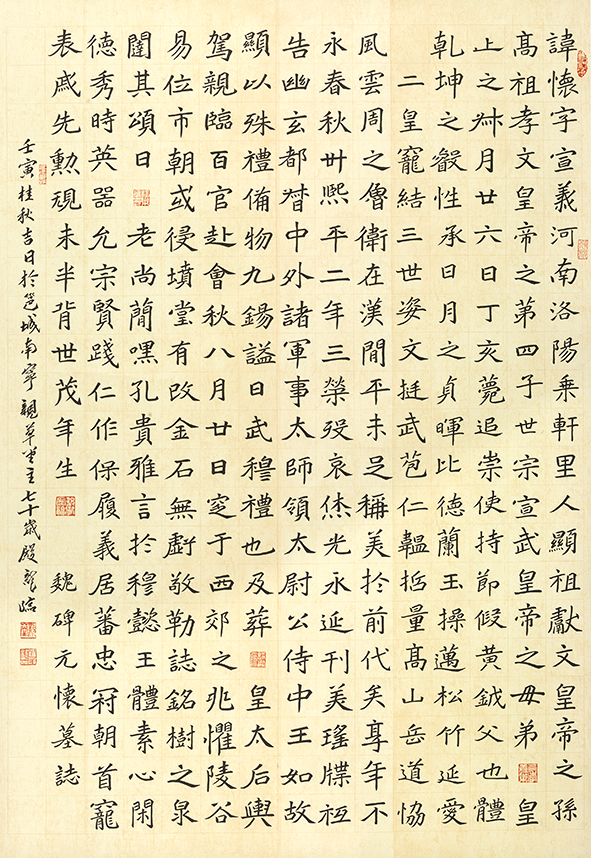 諱懷字宣義河南洛陽乗軒里人顯祖獻文皇帝之孫
髙祖孝文皇帝之第四子世宗宣武皇帝之母弟 皇
上之叔月廿六日丁亥薨追崇使持節假黄鉞父也體
乹坤之叡性承日月之貞暉比德蘭玉操邁松竹延愛
二皇寵結三世姿文挺武苞仁韞括量髙山岳道恊
風雲周之魯衛在漢間平未足稱美於前代矣享年不
永春秋卅熈平二年三榮殁哀休光永延刊美瑤牒袛
告幽玄都督中外諸軍事太師領太尉公侍中王如故
顯以殊禮備物九錫謚曰武穆禮也及葬 皇太后輿
駕親臨百官赴會秋八月廿日窆于西郊之兆懼陵谷
易位市朝或侵墳堂有改金石無虧敬勒誌銘樹之泉
闥其頌曰 老尚簡嘿孔貴雅言於穆懿王體素心閑
德秀時英器允宗賢踐仁作保履義居蕃忠冠朝首寵
表戚先勲規未半背世茂年生 魏碑元懷墓誌
壬寅桂秋吉日於邕城南寧親草堂主七十歲殷臨